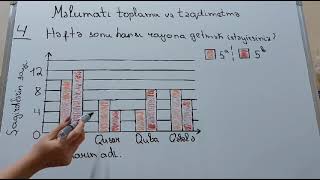 Məlumatı toplama və təqdimetmə
4
Həftə sonu hansı rayona getmək istəyirsiniz?
5ᵃ 5ᵇ
Şagirdlərin sayı
12
8
4
0
Qusar Quba
adı.